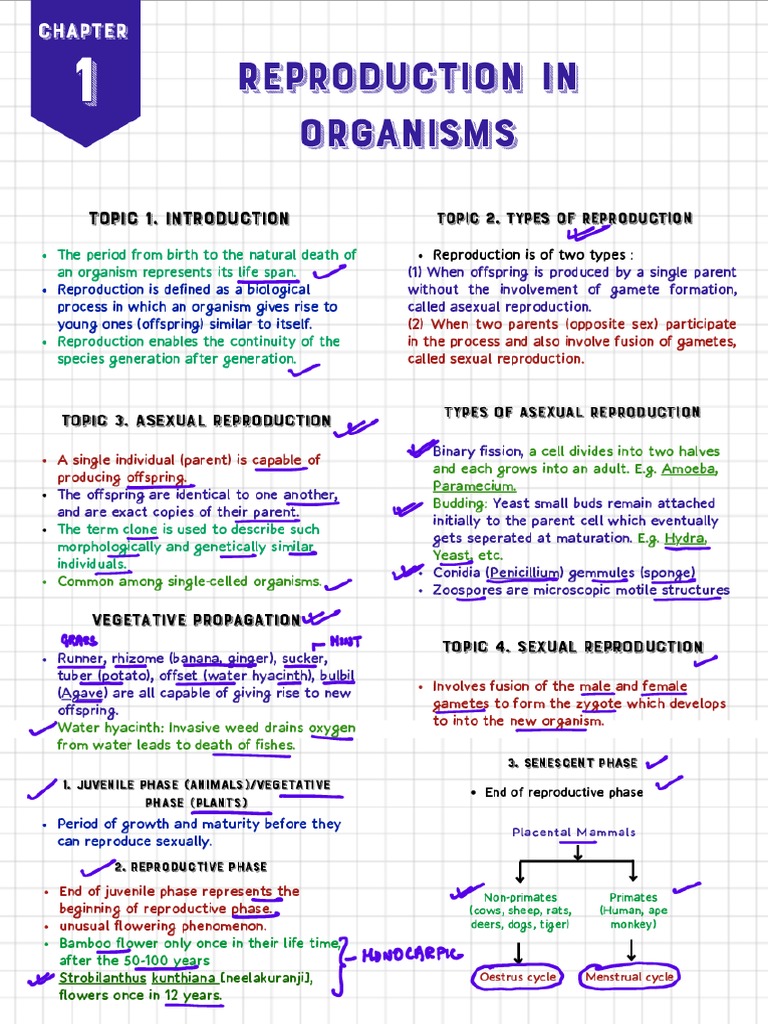 CHAPTER
1
REPRODUCTION IN
ORGANISMS
TOPIC 1. INTRODUCTION
• The period from birth to the natural death of
an organism represents its life span.
• Reproduction is defined as a biological
process in which an organism gives rise to
young ones (offspring) similar to itself.
• Reproduction enables the continuity of the
species generation after generation.
TOPIC 2. TYPES OF REPRODUCTION
• Reproduction is of two types :
(1) When offspring is produced by a single parent
without the involvement of gamete formation,
called asexual reproduction.
(2) When two parents (opposite sex) participate
in the process and also involve fusion of gametes,
called sexual reproduction.
TOPIC 3. ASEXUAL REPRODUCTION
• A single individual (parent) is capable of
producing offspring.
• The offspring are identical to one another,
and are exact copies of their parent.
• The term clone is used to describe such
morphologically and genetically similar
individuals.
• Common among single-celled organisms.
TYPES OF ASEXUAL REPRODUCTION
Binary fission, a cell divides into two halves
and each grows into an adult. E.g. Amoeba,
Paramecium.
Budding: Yeast small buds remain attached
initially to the parent cell which eventually
gets seperated at maturation. E.g. Hydra,
Yeast, etc.
• Conidia (Penicillium) gemmules (sponge)
• Zoospores are microscopic motile structures
VEGETATIVE PROPAGATION
GRASS
MINT
• Runner, rhizome (banana, ginger), sucker,
tuber (potato), offset (water hyacinth), bulbil
(Agave) are all capable of giving rise to new
offspring.
Water hyacinth: Invasive weed drains oxygen
from water leads to death of fishes.
TOPIC 4. SEXUAL REPRODUCTION
• Involves fusion of the male and female
gametes to form the zygote which develops
to into the new organism.
1. JUVENILE PHASE (ANIMALS)/VEGETATIVE
PHASE (PLANTS)
• Period of growth and maturity before they
can reproduce sexually.
2. REPRODUCTIVE PHASE
• End of juvenile phase represents the
beginning of reproductive phase.
• unusual flowering phenomenon.
• Bamboo flower only once in their life time,
after the 50-100 years
• Strobilanthus kunthiana [neelakuranji],
flowers once in 12 years.
MONOCARPIC
3. SENESCENT PHASE
• End of reproductive phase
Placental Mammals
Non-primates
(cows, sheep, rats,
deers, dogs, tiger)
Oestrus cycle
Primates
(Human, ape
monkey)
Menstrual cycle